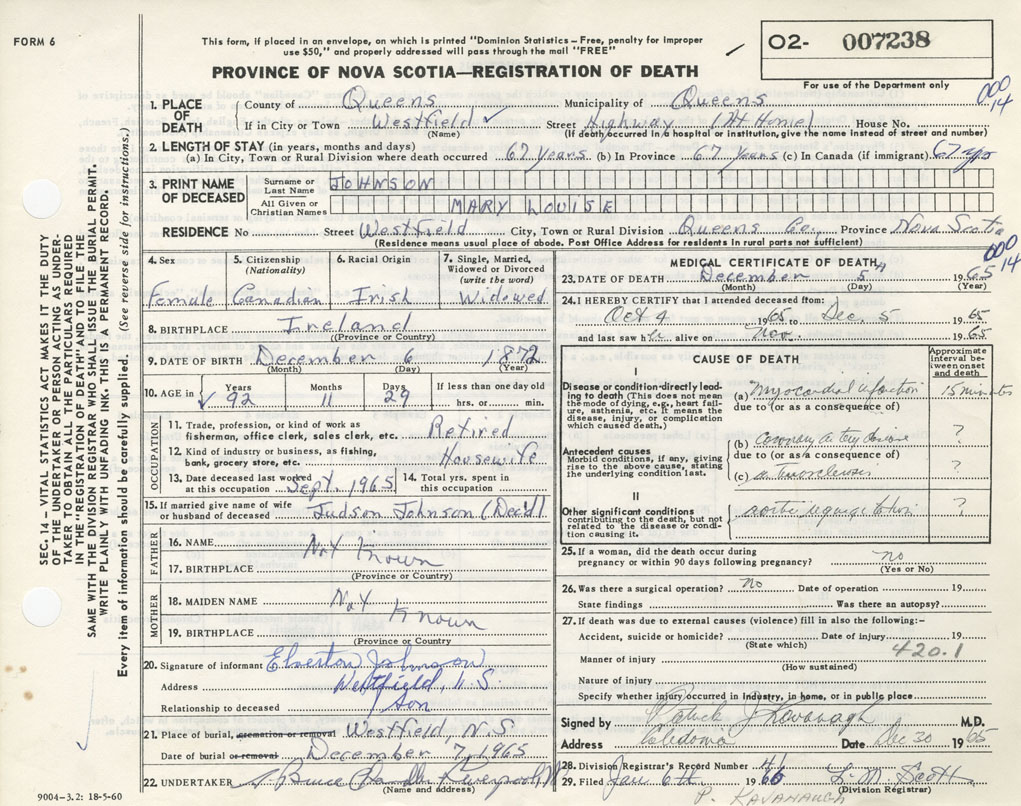 FORM 6
This form, if placed in an envelope, on which is printed "Dominion Statistics – Free, penalty for improper
use $50," and properly addressed will pass through the mail "FREE"
PROVINCE OF NOVA SCOTIA—REGISTRATION OF DEATH
O2- 007238
For use of the Department only
000
14
1. PLACE OF DEATH
County of Queens Municipality of Queens
If in City or Town Westfield ✓ Street Highway (At Home) House No.
(Name) (If death occurred in a hospital or institution, give the name instead of street and number)
2. LENGTH OF STAY (in years, months and days)
(a) In City, Town or Rural Division where death occurred 67 years (b) In Province 67 years (c) In Canada (if immigrant) 67 yrs
3. PRINT NAME OF DECEASED
Surname or Last Name JOHNSON
All Given or Christian Names MARY LOUISE
RESIDENCE No Street Westfield City, Town or Rural Division Queens Co., Province Nova Scotia
(Residence means usual place of abode. Post Office Address for residents in rural parts not sufficient)
000
14
4. Sex Female
5. Citizenship (Nationality) Canadian
6. Racial Origin Irish
7. Single, Married, Widowed or Divorced (write the word) Widowed
8. BIRTHPLACE Ireland
(Province or Country)
9. DATE OF BIRTH December 6 1872
(Month) (Day) (Year)
10. AGE in ✓ Years 92 Months 11 Days 29 If less than one day old hrs. or min.
OCCUPATION
11. Trade, profession, or kind of work as
fisherman, office clerk, sales clerk, etc. Retired
12. Kind of industry or business, as fishing,
bank, grocery store, etc. Housewife
13. Date deceased last worked
at this occupation Sept. 1965
14. Total yrs. spent in
this occupation
15. If married give name of wife
or husband of deceased Judson Johnson (Dec'd)
FATHER
16. NAME Not Known
17. BIRTHPLACE
(Province or Country)
MOTHER
18. MAIDEN NAME Not Known
19. BIRTHPLACE
(Province or Country)
20. Signature of informant Johnson
Address Westfield, N.S
Relationship to deceased Son
21. Place of burial, cremation or removal Westfield, N.S.
Date of burial or removal December 7, 1965
22. UNDERTAKER Bruce Liverpool
(Name and address)
9004-3.2: 18-5-60
MEDICAL CERTIFICATE OF DEATH
23. DATE OF DEATH December 5th 1965
(Month) (Day) (Year)
24. I HEREBY CERTIFY that I attended deceased from:
Oct 4, 1965 to Dec. 5 1965
and last saw h alive on Nov. 1965
CAUSE OF DEATH
Approximate interval between onset and death
I
Disease or condition directly lead-
ing to death (This does not mean
the mode of dying, e.g., heart failure,
asthenia, etc. It means the disease,
injury, or complication
which caused death.)
(a) Myocardial infarction 15 minutes
due to (or as a consequence of)
Antecedent causes
Morbid conditions, if any, giving
rise to the above cause, stating
the underlying condition last.
(b) Coronary artery disease ?
due to (or as a consequence of)
(c) ?
II
Other significant conditions
contributing to the death, but not
related to the disease or condition
causing it.
aortic regurgitation ?
25. If a woman, did the death occur during
pregnancy or within 90 days following pregnancy? no
(Yes or No)
26. Was there a surgical operation? no Date of operation 19
State findings Was there an autopsy?
27. If death was due to external causes (violence) fill in also the following:–
Accident, suicide or homicide? Date of injury 19
(State which)
420.1
Manner of injury
(How sustained)
Nature of injury
Specify whether injury occurred in industry, in home, or in public place
Signed by Patrick J Kavanagh M.D.
Address Caledonia Date Dec 30 1965
28. Division Registrar's Record Number 46
29. Filed Jan 6th 1966 L. M. Scott
(Division Registrar)
P. KAVANAUGH
SEC. 14 – VITAL STATISTICS ACT MAKES IT THE DUTY
OF THE UNDERTAKER OR PERSON ACTING AS UNDER-
TAKER TO OBTAIN ALL THE PARTICULARS REQUIRED
IN THE "REGISTRATION OF DEATH" AND TO FILE THE
SAME WITH THE DIVISION REGISTRAR WHO SHALL ISSUE THE BURIAL PERMIT.
WRITE PLAINLY WITH UNFADING INK. THIS IS A PERMANENT RECORD.
Every item of information should be carefully supplied. (See reverse side for instructions.)